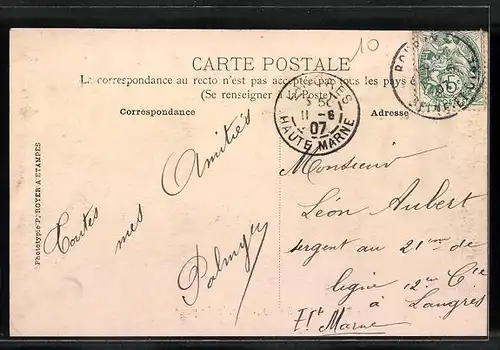 10
CARTE POSTALE
La correspondance au recto n'est pas acceptée par tous les pays é
(Se renseigner à la Poste)
Correspondance
Adresse
LANGRES
11 - 6
07
HAUTE MARNE
5
Phototypie P. ROYER A ETAMPES
Toutes
mes
Amitiés
Palmyre
Monsieur
Léon Aubert
sergent au 21ème de
ligne 12e Cie
à Langres
Hte Marne